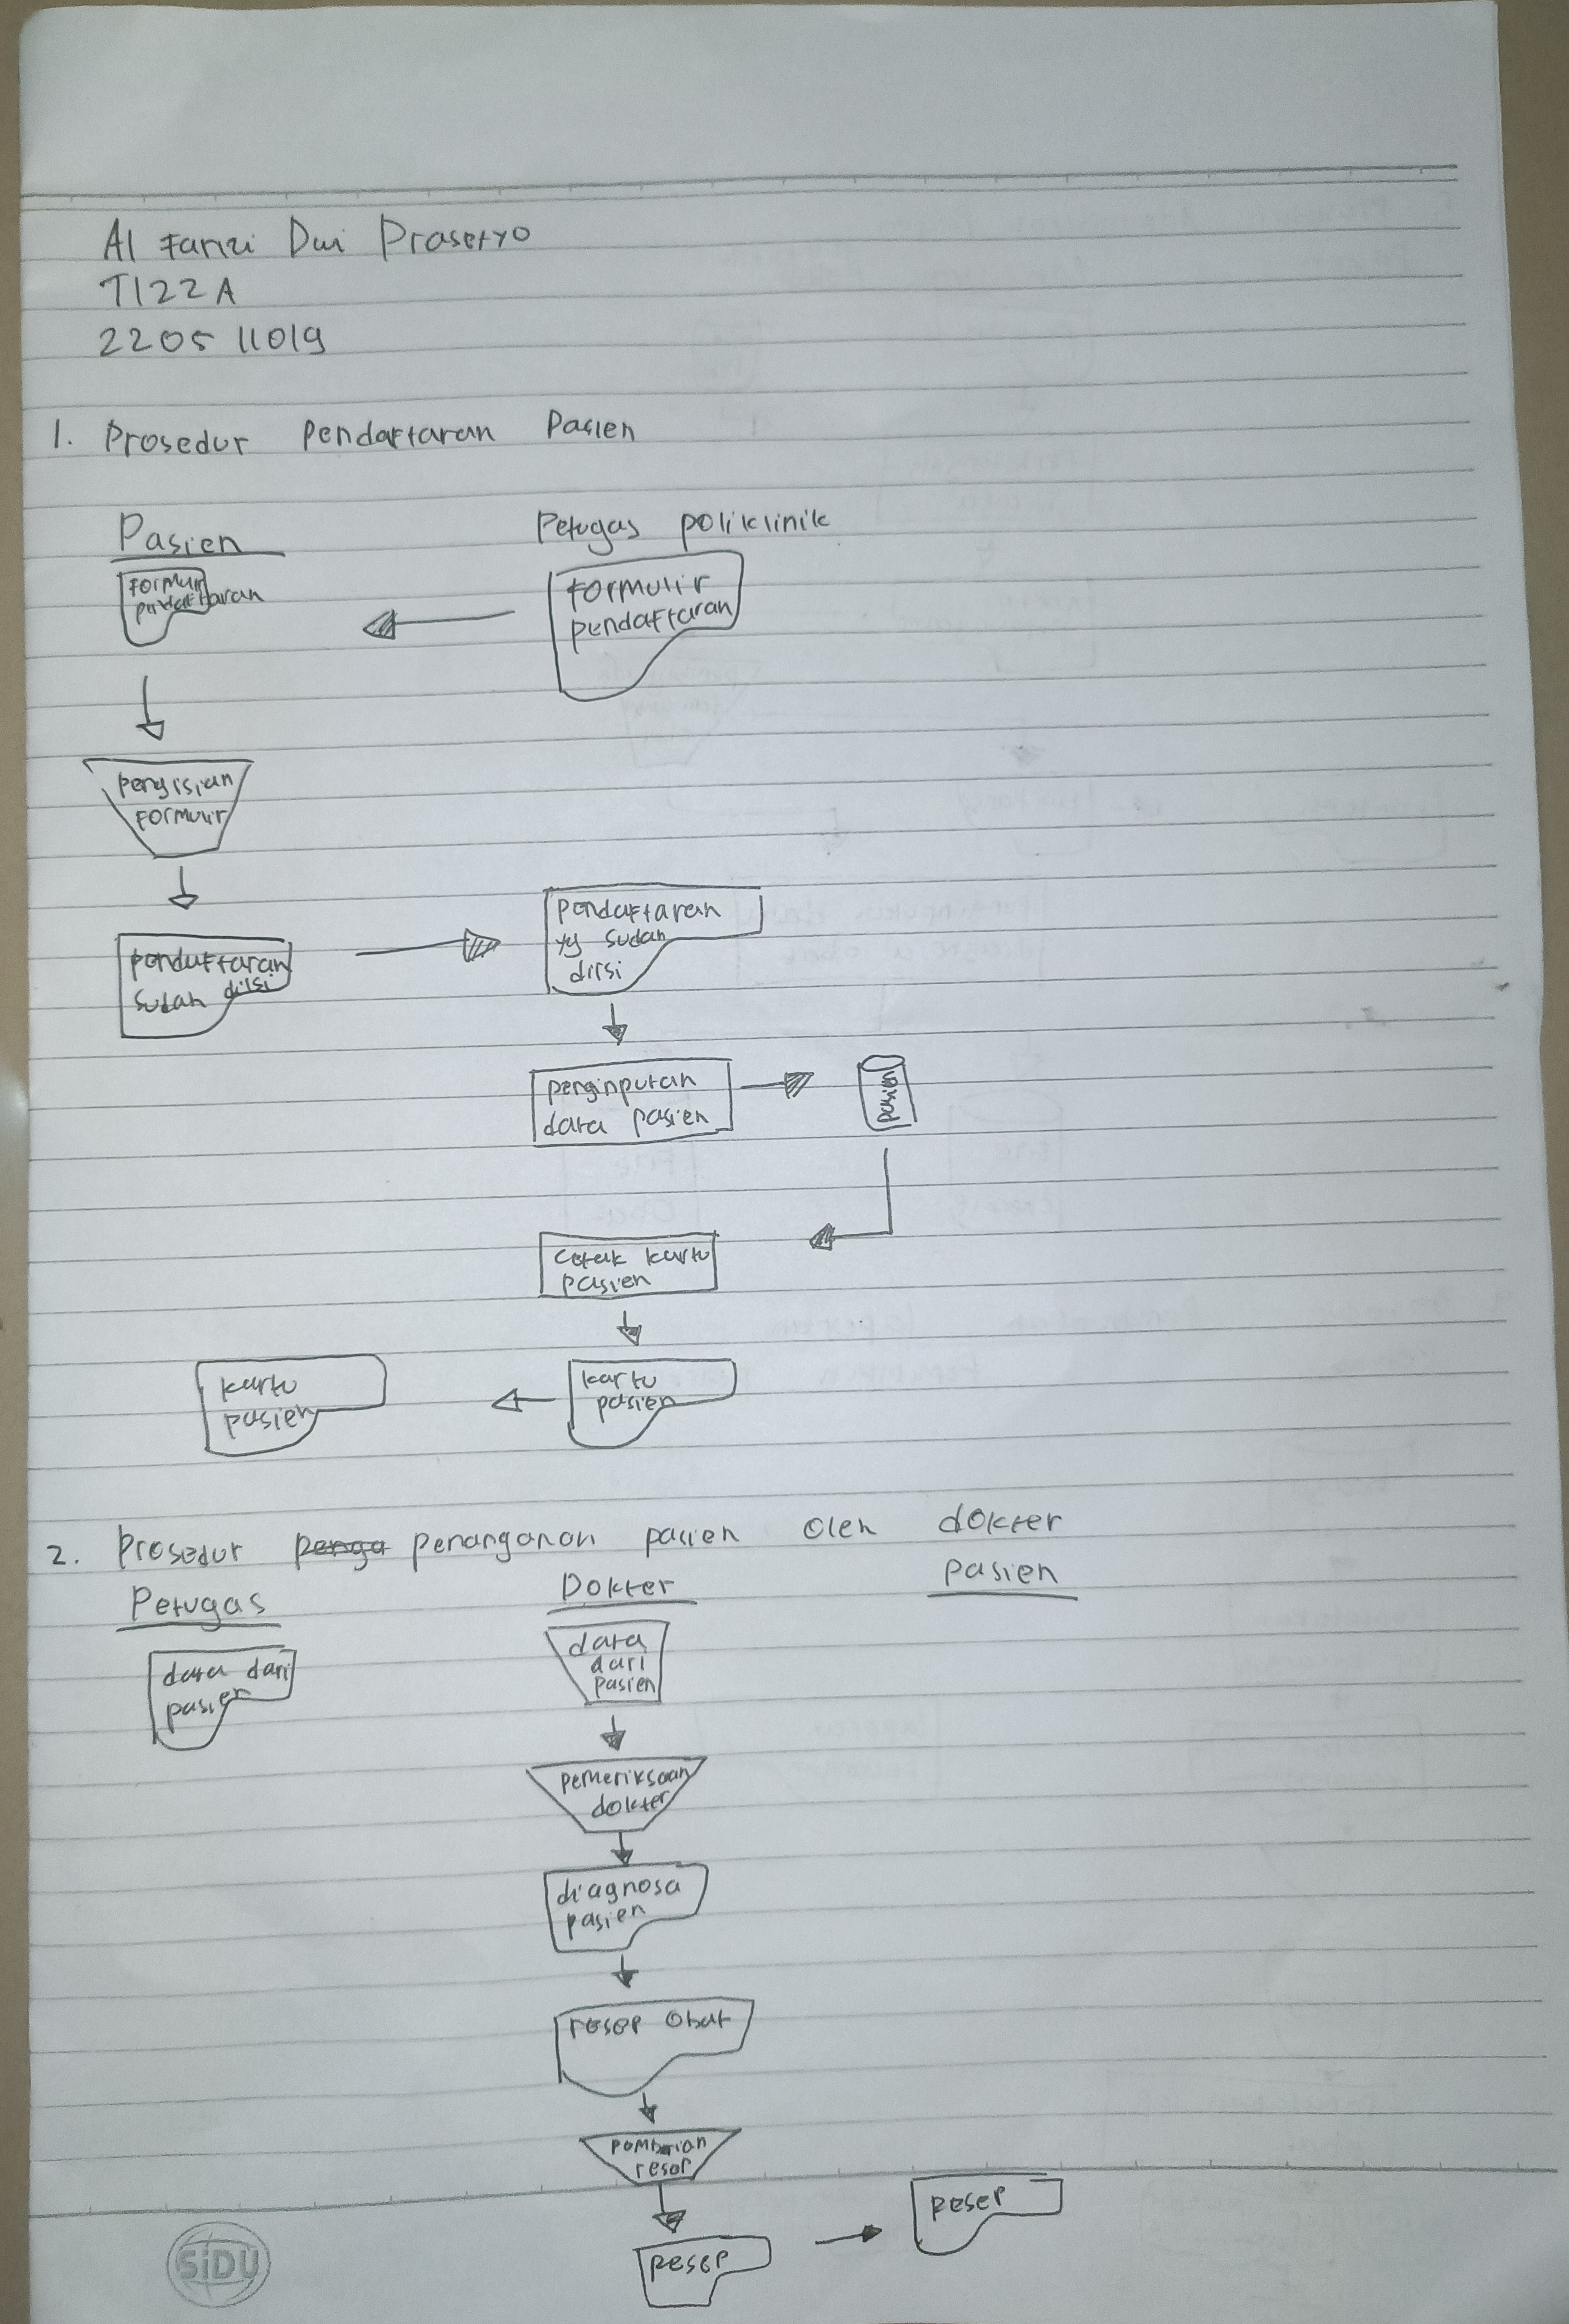 Al Farizi Dwi Prasetyo
TI22A
2205 11019
1. Prosedur Pendaftaran Pasien
Pasien
Petugas poliklinik
Formulir
pendaftaran
Formulir
pendaftaran
pengisian
Formulir
pendaftaran
sudah diisi
pendaftaran
yg sudah
diisi
penginputan
data pasien
pasien
cetak kartu
pasien
kartu
pasien
kartu
pasien
2. Prosedur penga penanganan pasien oleh dokter
Petugas
Dokter
pasien
data dari
pasien
data
dari
pasien
pemeriksaan
dokter
diagnosa
pasien
resep obat
pemberian
resep
resep
resep
SiDU